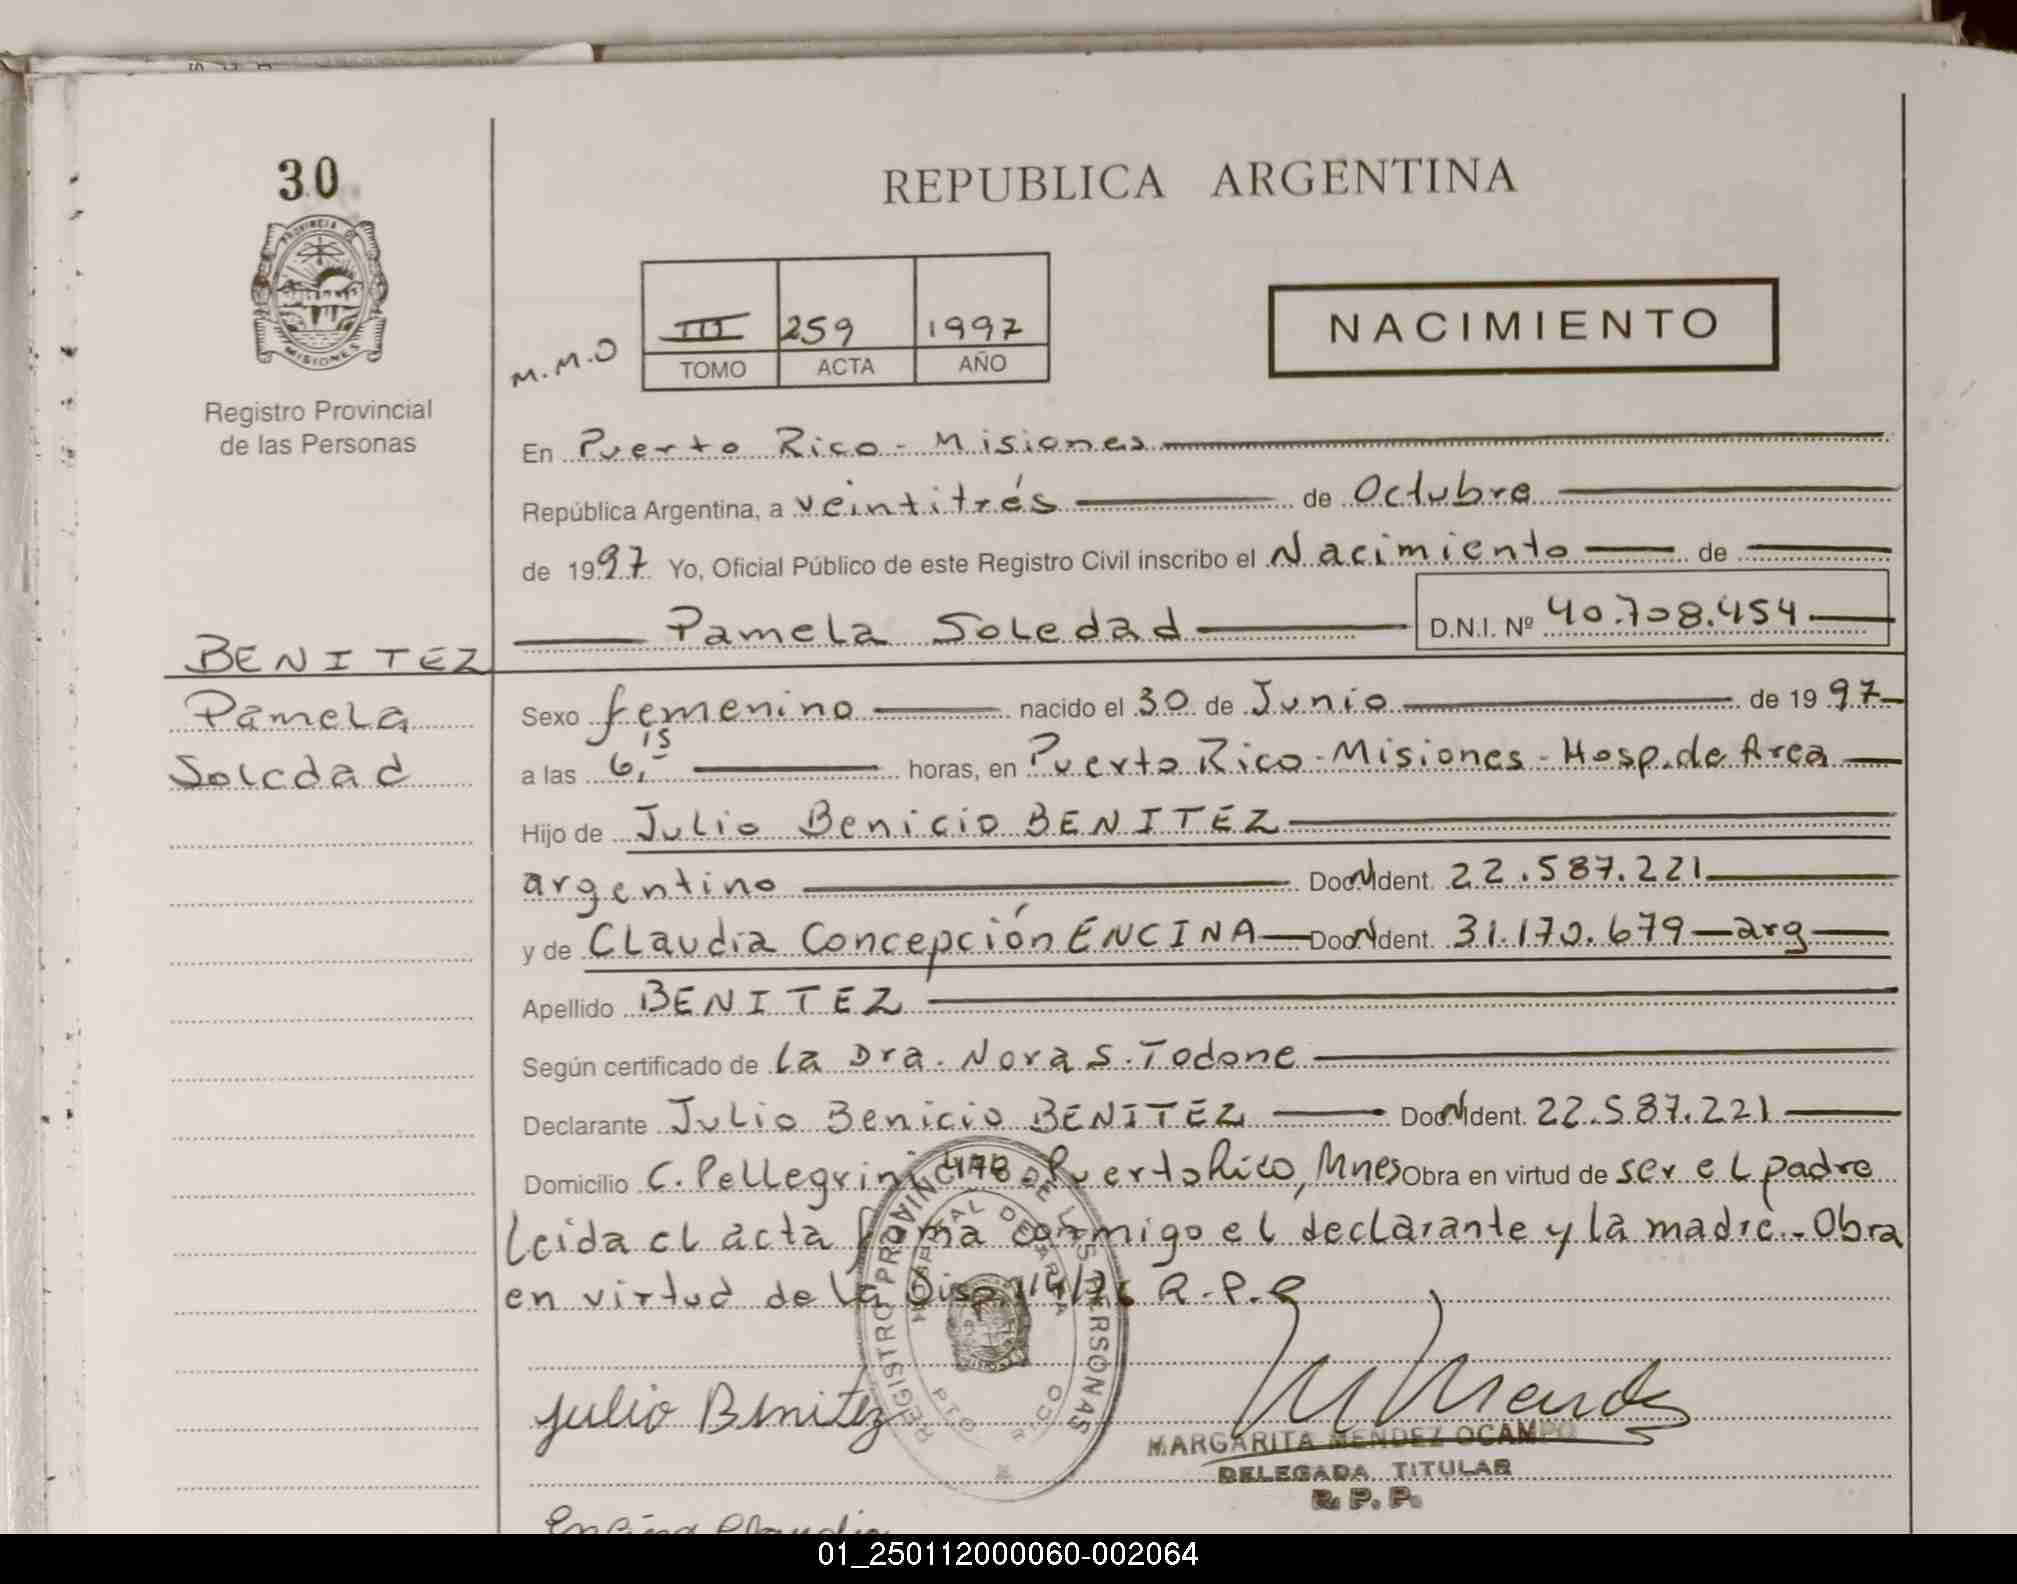 30
REPUBLICA ARGENTINA
PROVINCIA DE
MISIONES
Registro Provincial
de las Personas
M.M.O
III 259 1997
TOMO ACTA AÑO
NACIMIENTO
En Puerto Rico - Misiones
República Argentina, a veintitrés de Octubre
de 1997 Yo, Oficial Público de este Registro Civil inscribo el Nacimiento de
Pamela Soledad D.N.I. Nº 40.708.454
BENITEZ
Pamela
Soledad
Sexo femenino nacido el 30 de Junio de 1997
a las 6,15 horas, en Puerto Rico - Misiones - Hosp. de Area
Hijo de Julio Benicio BENITEZ
argentino Doc. Ident. 22.587.221
y de Claudia Concepción ENCINA Doc. Ident. 31.170.679 - arg
Apellido BENITEZ
Según certificado de la Dra. Nora S. Todone
Declarante Julio Benicio BENITEZ Doc. Ident. 22.587.221
Domicilio C. Pellegrini 478 Puerto Rico, Mnes Obra en virtud de ser el padre
leida el acta firma conmigo el declarante y la madre. - Obra
en virtud de la Disp. 114/76 R.P.P
REGISTRO PROVINCIAL DE LAS PERSONAS
HOSPITAL DE AREA
PTO RICO
Julio Benitez
MARGARITA MENDEZ OCAMPO
DELEGADA TITULAR
R.P.P.
Encina Claudia
01_250112000060-002064